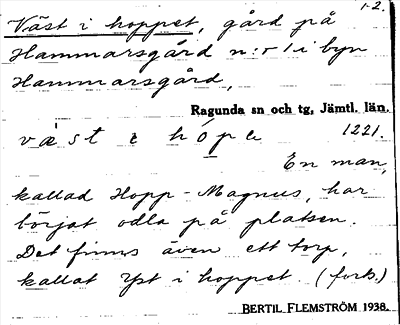 1-2.
Väst i hoppet, gård på
Hammarsgård n:o 1 i byn
Hammarsgård,
Ragunda sn och tg, Jämtl. län.
væst i hópe 1221.
En man,
kallad Hopp-Magnus, har
börjat odla på platsen.
Det finns även ett torp,
kallat Yst i hoppet (forts.)
BERTIL FLEMSTRÖM 1938.